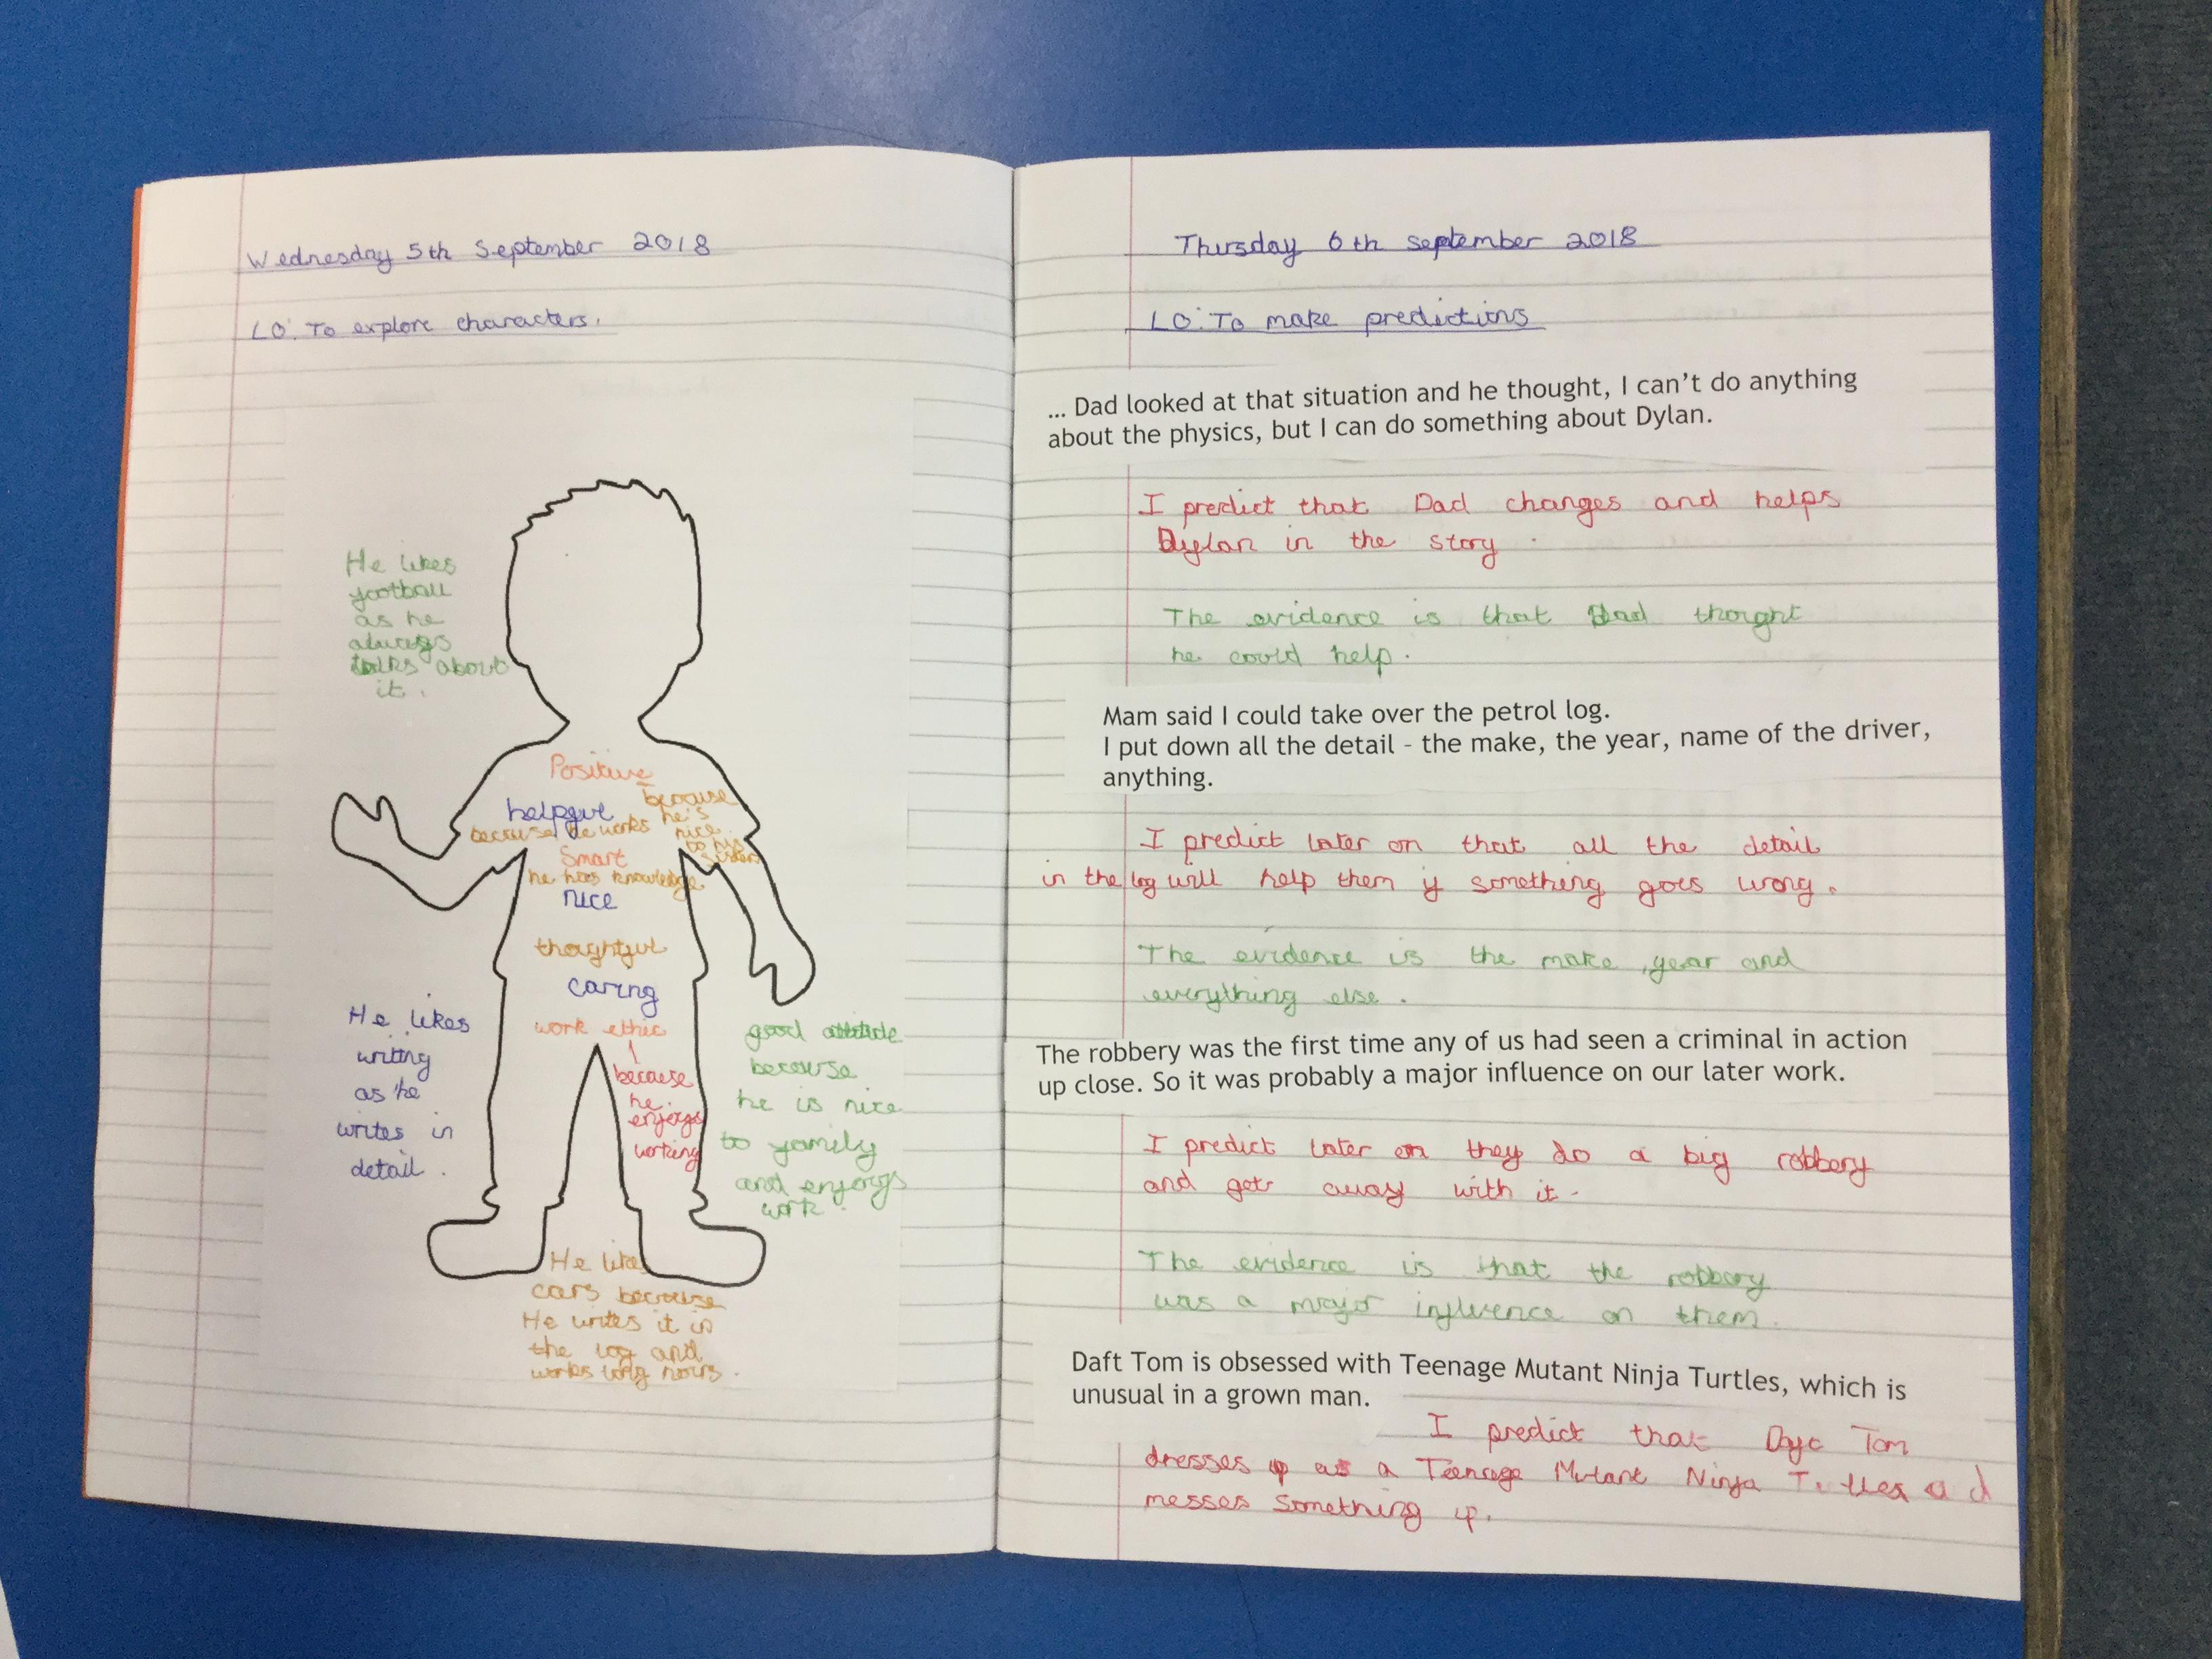 Wednesday 5th September 2018
LO: To explore characters.
He likes
football
as he
always
talks about
it.
Positive
because
he's
nice
to his
sister
helpful
because he works
Smart
he has knowledge
nice
thoughtful
caring
work ethic
because
he
enjoys
working
He likes
writing
as he
writes in
detail.
good attitude
because
he is nice
to family
and enjoys
work
He likes
cars because
He writes it in
the log and
works long hours.
Thursday 6th september 2018
LO: To make predictions
... Dad looked at that situation and he thought, I can't do anything
about the physics, but I can do something about Dylan.
I predict that Dad changes and helps
Dylan in the story.
The evidence is that Dad thought
he could help.
Mam said I could take over the petrol log.
I put down all the detail - the make, the year, name of the driver,
anything.
I predict later on that all the detail
in the log will help them if something goes wrong.
The evidence is the make, year and
everything else.
The robbery was the first time any of us had seen a criminal in action
up close. So it was probably a major influence on our later work.
I predict later on they do a big robbery
and get away with it.
The evidence is that the robbery
was a major influence on them.
Daft Tom is obsessed with Teenage Mutant Ninja Turtles, which is
unusual in a grown man.
I predict that Daft Tom
dresses up as a Teenage Mutant Ninja Turtles and
messes something up.